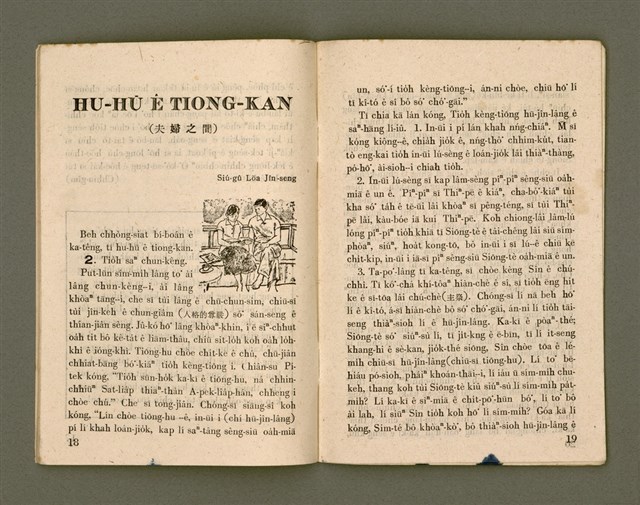 HU-HŪ Ê TIONG-KAN
(夫婦之間)
Siú-gû Lōa Jîn-seng
Beh chhòng-siat bí-boán ê
ka-têng, tī hu-hū ê tiong-kan.
2. Tio̍h saⁿ chun-kèng.
Put-lūn sím-mi̍h lâng to͘ ài
lâng chun-kèng-i, ài lâng
khòaⁿ tāng-i, che sī tùi lâng ê chū-chun-sim, chiū-sī
tùi jîn-keh ê chun-giâm (人格的尊嚴) só͘ sán-seng ê
thian-jiân sèng. Jû-kó ho͘ lâng khòaⁿ-khin, i ê sìⁿ-chhut
oa̍h tit bô kè-ta̍t ê liām-thâu, chiū sit-lo̍h koh oa̍h-lo̍h-
khì ê ióng-khì. Tiōng-hu chòe chi̍t-ke ê chú, chū-jiân
chhiat-bāng bó͘-kiáⁿ tio̍h kèng-tiōng i. Chiân-su Pí-
tek kóng, "Tio̍h sūn-ho̍k ka-kī ê tiōng-hu, ná chhin-
chhiūⁿ Sat-lia̍p thiàⁿ-thàn A-pek-lia̍p-hán, chheng i
chòe chú." Che sī tong-jiân. Chóng-sī siāng-sî koh
kóng, "Lín chòe tiōng-hu-ê, in-ūi i (chí hū-jîn-lâng)
pí lí khah loán-jio̍k, kap lí saⁿ-tâng sêng-siū oa̍h-miā
18
un, só͘-í tio̍h kèng-tiōng-i, án-ni chòe, chiū hō͘ lí
tī kî-tó ê sî bô só͘ chó͘-gāi."
Tī chia kā lán kóng, Tio̍h kèng-tiōng hū-jîn-lâng ê
saⁿ-hāng lí-iû. 1. In-ūi i pí lán khah nńg-chiáⁿ. M̄ sī
kóng kiōng-ê, chiah jio̍k ê, nńg-tho̍ chhim-ku̍t, tian-
tò eng-kai tio̍h in-ūi lú-sèng ê loán-jio̍k lâi thiàⁿ-thàng,
pó-hō͘, ài-sioh-i chiah tio̍h.
2. In-ūi i lú-sèng sī kap lâm-sèng pîⁿ-pîⁿ sêng-siū oa̍h-
miā ê un ê. Pîⁿ-pîⁿ sī Thiⁿ-pē ê kiáⁿ, cha-bó͘-kiáⁿ tùi
kha só͘ ta̍h ê tē-ūi lâi khòaⁿ sī pêng-téng, sī tùi Thiⁿ-
pē lâi, kàu-bóe iā kui Thiⁿ-pē. Koh chiong-lâi lâm-lú
lóng pîⁿ-pîⁿ tio̍h khiā tī Siōng-tè ê tâi-chêng lâi siū sím-
phòaⁿ, siúⁿ, hoa̍t kong-tō, bô in-ūi i sī lú-ê chiū kè
chi̍t-kip, in-ūi i iā-sī pîⁿ sêng-siū Siōng-tè oa̍h-miā ê un.
3. Ta-po͘-lâng tī ka-têng, sī chòe kèng Sîn ê chú-
chhî. Tī kó͘-chá khí-tōaⁿ hiàn-chè ê sî, sī tio̍h êng hit
ke ê sī-tōa lâi chú-chè(主祭). Chóng-sī lí nā beh hō͘
lí ê kî-tó, á-sī hiàn-chè bô só͘ chó͘-gāi, án-ni lí tio̍h tāi-
seng thiàⁿ-sioh lí ê hū-jîn-lâng. Ka-kī ê pòaⁿ-thé;
Siōng-tè só͘ siúⁿ-sù lí, tī ji̍t-kng ê ē-bīn, tī lí it-seng
khang-hi ê sè-kan, jio̍k-thé siōng, Sîn chòe tōa ê lé-
mi̍h chiū-sī hū-jîn-lâng(chiū-sī tiōng-hu). Lí to͘ bē-
hiáu pó-sioh, pháiⁿ khoán-thāi-i, lí iáu ū sím-mi̍h chu-
keh, thang koh tùi Siōng-tè kiû siúⁿ-sù lí sím-mi̍h pa̍t-
mi̍h? Lí ka-kī ê sìⁿ-miā ê chi̍t-pō͘-hūn bó͘, lí to͘ bô
ài lah, lí siūⁿ Sîn tio̍h koh hō͘ lí sím-mi̍h? Góa kā lí
kóng, Sím-tè bô khòaⁿ-kò͘, bô thiàⁿ-sioh hū-jîn-lâng ê
19